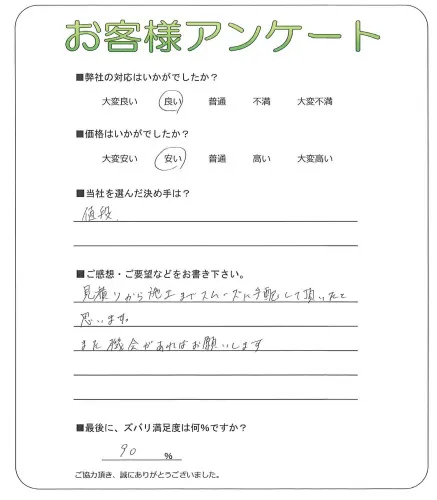 お客様アンケート
■弊社の対応はいかがでしたか?
大変良い 良い 普通 不満 大変不満
■価格はいかがでしたか?
大変安い 安い 普通 高い 大変高い
■当社を選んだ決め手は?
値段.
■ご感想・ご要望などをお書き下さい。
見積りから施工までスムーズに手配して頂いたと
思います。
また機会があればお願いします
■最後に、ズバリ満足度は何%ですか?
90 %
ご協力頂き、誠にありがとうございました。